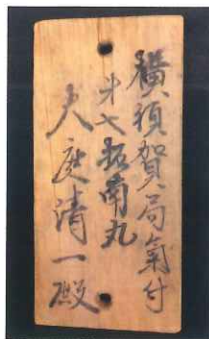 横須賀局氣付
第七拓南丸
大庭清一殿